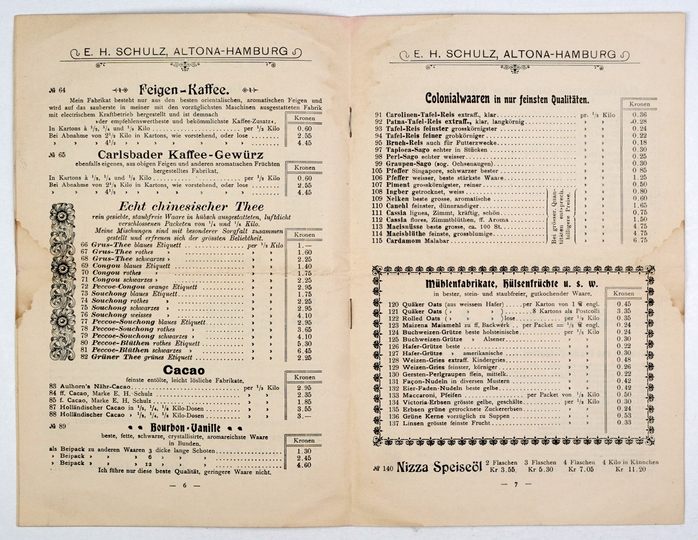 E. H. SCHULZ, ALTONA-HAMBURG
№ 64 Feigen-Kaffee.
Mein Fabrikat besteht nur aus den besten orientalischen, aromatischen Feigen und
wird auf das sauberste in meiner mit den vorzüglichsten Maschinen ausgestatteten Fabrik
mit electrischem Kraftbetrieb hergestellt und ist demnach
»der empfehlenswertheste und bekömmlichste Kaffee-Zusatz«.
Kronen
In Kartons à 1/8, 1/4 und 1/2 Kilo per 1/2 Kilo 0.60
Bei Abnahme von 2 1/2 Kilo in Kartons, wie vorstehend, oder lose 2.55
» » » 4 1/2 » » » » » » 4.45
№ 65 Carlsbader Kaffee-Gewürz
ebenfalls eigenes, aus obigen Feigen und anderen aromatischen Früchten
hergestelltes Fabrikat.
Kronen
In Kartons à 1/8, 1/4 und 1/2 Kilo per 1/2 Kilo 0.60
Bei Abnahme von 2 1/2 Kilo in Kartons, wie vorstehend, oder lose 2.55
» » » 4 1/2 » » » » » » 4.45
Echt chinesischer Thee
rein gesiebte, staubfreie Waare in hübsch ausgestatteten, luftdicht
verschlossenen Packeten von 1/4 und 1/2 Kilo.
Meine Mischungen sind mit besonderer Sorgfalt zusammen
gestellt und erfreuen sich der grössten Beliebtheit.
Kronen
66 Grus-Thee blaues Etiquett per 1/2 Kilo 1.—
67 Grus-Thee rothes » » » 1.60
68 Grus-Thee schwarzes » » » 2.25
69 Congou blaues Etiquett » » 1.40
70 Congou rothes » » » 1.75
71 Congou schwarzes » » » 2.25
72 Peccoe-Congou orange Etiquett » » 2.95
73 Souchong blaues Etiquett » » 1.75
74 Souchong rothes » » » 2.25
75 Souchong schwarzes » » » 2.95
76 Souchong weisses » » » 4.10
77 Peccoe-Souchong blaues Etiquett » » 2.95
78 Peccoe-Souchong rothes » » » 3.65
79 Peccoe-Souchong schwarzes » » » 4.10
80 Peccoe-Blüthen rothes Etiquett » » 5.30
81 Peccoe-Blüthen schwarzes » » » 6.45
82 Grüner Thee grünes Etiquett » » 2.25
Cacao
feinste entölte, leicht lösliche Fabrikate.
Kronen
83 Aulhorn's Nähr-Cacao per 1/2 Kilo 2.95
84 ff. Cacao, Marke E. H. Schulz » » 2.35
85 f. Cacao, Marke E. H. Schulz » » 1.85
87 Holländischer Cacao in 1/8, 1/4, 1/2 Kilo-Dosen » » 3.55
88 Holländischer Cacao in 1/8, 1/4, 1/2 Kilo-Dosen » » 3.—
№ 89 Bourbon-Vanille
beste, fette, schwarze, crystallisirte, aromareichste Waare
in Bunden.
Kronen
als Beipack zu anderen Waaren 3 dicke lange Schoten 1.30
» Beipack » » » 6 » » » 2.45
» Beipack » » » 12 » » » 4.60
Ich führe nur diese beste Qualität, geringere Waare nicht.
— 6 —
E. H. SCHULZ, ALTONA-HAMBURG
Colonialwaaren in nur feinsten Qualitäten.
Kronen
91 Carolinen-Tafel-Reis extraff., klar pr. 1/2 Kilo 0.36
92 Patna-Tafel-Reis extraff., klar, langkörnig » » 0.28
93 Tafel-Reis feinster grosskörnigster » » 0.24
94 Tafel-Reis feiner grobkörniger » » 0.22
95 Bruch-Reis auch für Futterzwecke » » 0.18
97 Tapioca-Sago echter in Stücken » » 0.30
98 Perl-Sago echter weisser » » 0.25
99 Graupen-Sago (sog. Ochsenaugen) » » 0.30
105 Pfeffer Singapore, schwarzer bester » » 0.85
106 Pfeffer weisser, beste stärkste Waare » » 1.25
107 Piment grosskörnigster, reiner » » 0.50
108 Ingber getrocknet, weiss » » 0.80
109 Nelken beste grosse, aromatische » » 0.60
110 Canehl feinster, dünnrandiger » » 1.65
111 Cassia lignea, Zimmt, kräftig, schön » » 0.75
112 Cassia flores, Zimmtblüthen, ff. Aroma » » 1.50
113 Macisnüsse beste grosse, ca. 100 St. » » 4.75
114 Macisblüthe feinste, grossblumige » » 4.75
115 Cardamom Malabar » » 6.75
Bei grösser. Quantitäten entsprech. billigere Preise
Mühlenfabrikate, Hülsenfrüchte u. s. w.
in bester, stein- und staubfreier, gutkochender Waare.
Kronen
120 Quäker Oats (aus weissem Hafer) per Karton von 1 ℔ engl. 0.45
121 Quäker Oats ( » » » ) 8 Kartons als Postcolli 3.35
122 Rolled Oats ( » » » ) lose per 1/2 Kilo 0.35
123 Maizena Maismehl zu ff. Backwerk per Packet = 1/2 ℔ engl. 0.24
124 Buchweizen-Grütze beste holsteinische per 1/2 Kilo 0.24
125 Buchweizen-Grütze » Alsener » » 0.30
126 Hafer-Grütze beste » » 0.22
127 Hafer-Grütze » amerikanische » » 0.30
128 Weizen-Gries extraff. Kindergries » » 0.48
129 Weizen-Gries feinster, körniger » » 0.26
130 Gersten-Perlgraupen fein, mittelk. » » 0.22
131 Façon-Nudeln in diversen Mustern » » 0.42
132 Eier-Faden-Nudeln beste gelbe » » 0.42
133 Maccaroni, Pfeifen per Packet von 1/2 Kilo 0.50
134 Victoria-Erbsen grösste gelbe, geschälte per 1/2 Kilo 0.30
135 Erbsen grüne getrocknete Zuckererbsen » » 0.24
136 Grüne Kerne vorzüglich zu Suppen » » 0.53
137 Linsen grösste feinste Frucht » » 0.33
№ 140 Nizza Speiseöl 2 Flaschen Kr 3.55 3 Flaschen Kr 5.30 4 Flaschen Kr 7.05 4 Kilo in Kännchen Kr 11.20
— 7 —